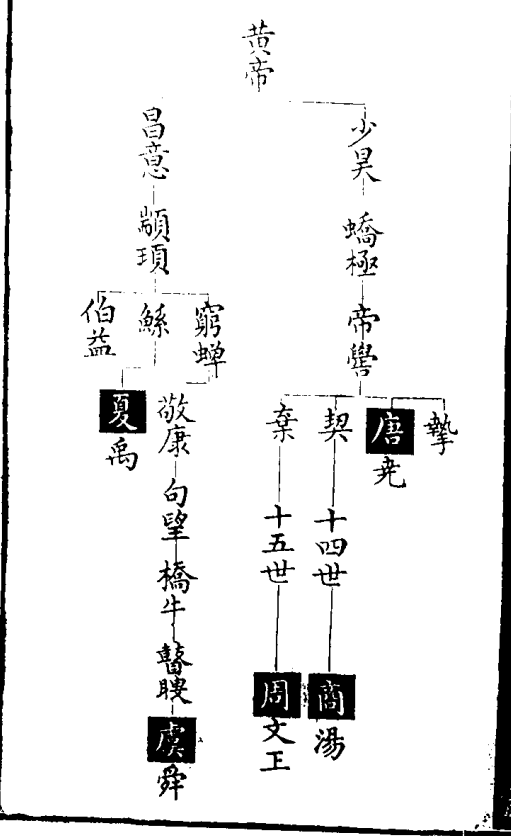 黄帝
少昊
蟜極
帝嚳
摯
唐堯
契
十四世
商湯
棄
十五世
周文王
昌意
顓頊
窮蝉
敬康
句望
橋牛
瞽瞍
虞舜
鯀
夏禹
伯益